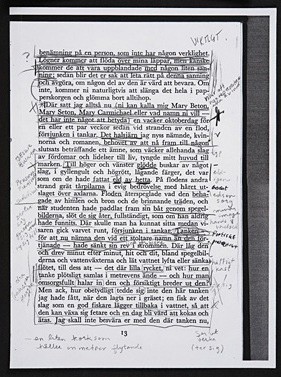 benämning på en person, som inte har någon verklighet.
Lögner kommer att flöda över mina läppar, men kanske
kommer de att vara uppblandade med någon liten san-
ning; sedan blir det er sak att leta rätt på denna sanning
och avgöra, om någon del av den är värd att bevara. Om
inte, kommer ni naturligtvis att slänga det hela i pap-
perskorgen och glömma bort alltihop.
Där satt jag alltså nu (ni kan kalla mig Mary Beton,
Mary Seton, Mary Carmichael eller vad namn ni vill —
det har inte något att betyda) en vacker oktoberdag för
en eller ett par veckor sedan vid stranden av en flod,
försjunken i tankar. Det halsjärn jag nyss nämnde, kvin-
norna och romanen, behovet av att nå fram till någon
slutsats beträffande ett ämne, som väcker allehanda slag
av fördomar och lidelser till liv, tyngde mitt huvud till
marken. Till höger och vänster glödde buskar av något
slag, i gyllengult och högrött, lågande färger, det var
som om de hade fattat eld av hetta. På flodens andra
strand grät tårpilarna i evig bedrövelse med håret ut-
slaget över axlarna. Floden återspeglade vad den beha-
gade av himlen och bron och de brinnande träden, och
när studenten hade paddlat fram sin båt genom spegel-
bilderna, slöt de sig åter, fullständigt, som om han aldrig
hade funnits. Där skulle man ha kunnat sitta medan vi-
saren gick varvet runt, försjunken i tankar. Tanken —
för att nu nämna den vid ett stoltare namn än den för-
tjänade — hade sänkt sin rev i strömmen. Där låg den
och drev minut efter minut, hit och dit, bland spegelbil-
derna och vattenväxterna och lät vattnet lyfta eller sänka
flötet, till dess att — det där lilla rycket, ni vet: hur en
tanke plötsligt samlas i metrevens ände — och hur man
omsorgsfullt halar in den och försiktigt breder ut den?
Men ack, hur obetydligt tedde sig inte den här tanken
jag hade fått, när den lagts ner i gräset; en fisk av det
slag som en god fiskare lägger tillbaka i vattnet, så att
den kan växa sig fetare och en dag bli värd att kokas och
ätas. Jag skall inte besvära er med den där tanken nu,
13
— en liten kork som
håller en metrev flytande